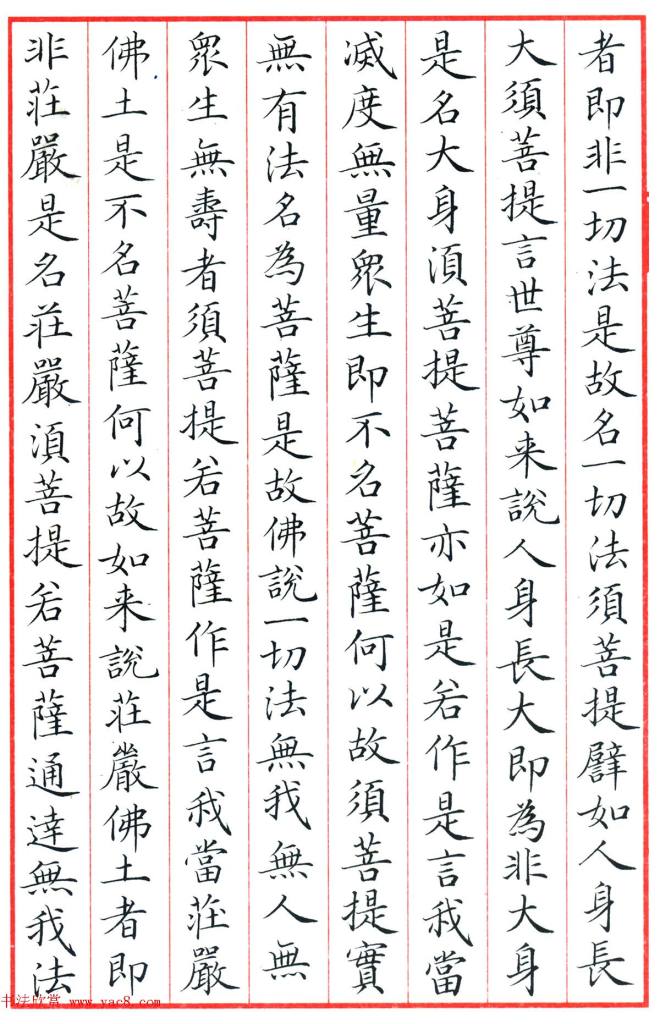 者即非一切法是故名一切法須菩提譬如人身長
大須菩提言世尊如来說人身長大即為非大身
是名大身湏菩提菩薩亦如是若作是言我當
滅度無量衆生即不名菩薩何以故須菩提實
無有法名為菩薩是故佛說一切法無我無人無
衆生無壽者須菩提若菩薩作是言我當莊嚴
佛土是不名菩薩何以故如来說莊嚴佛土者即
非莊嚴是名莊嚴湏菩提若菩薩通達無我法
书法欣赏 www.yac8.com